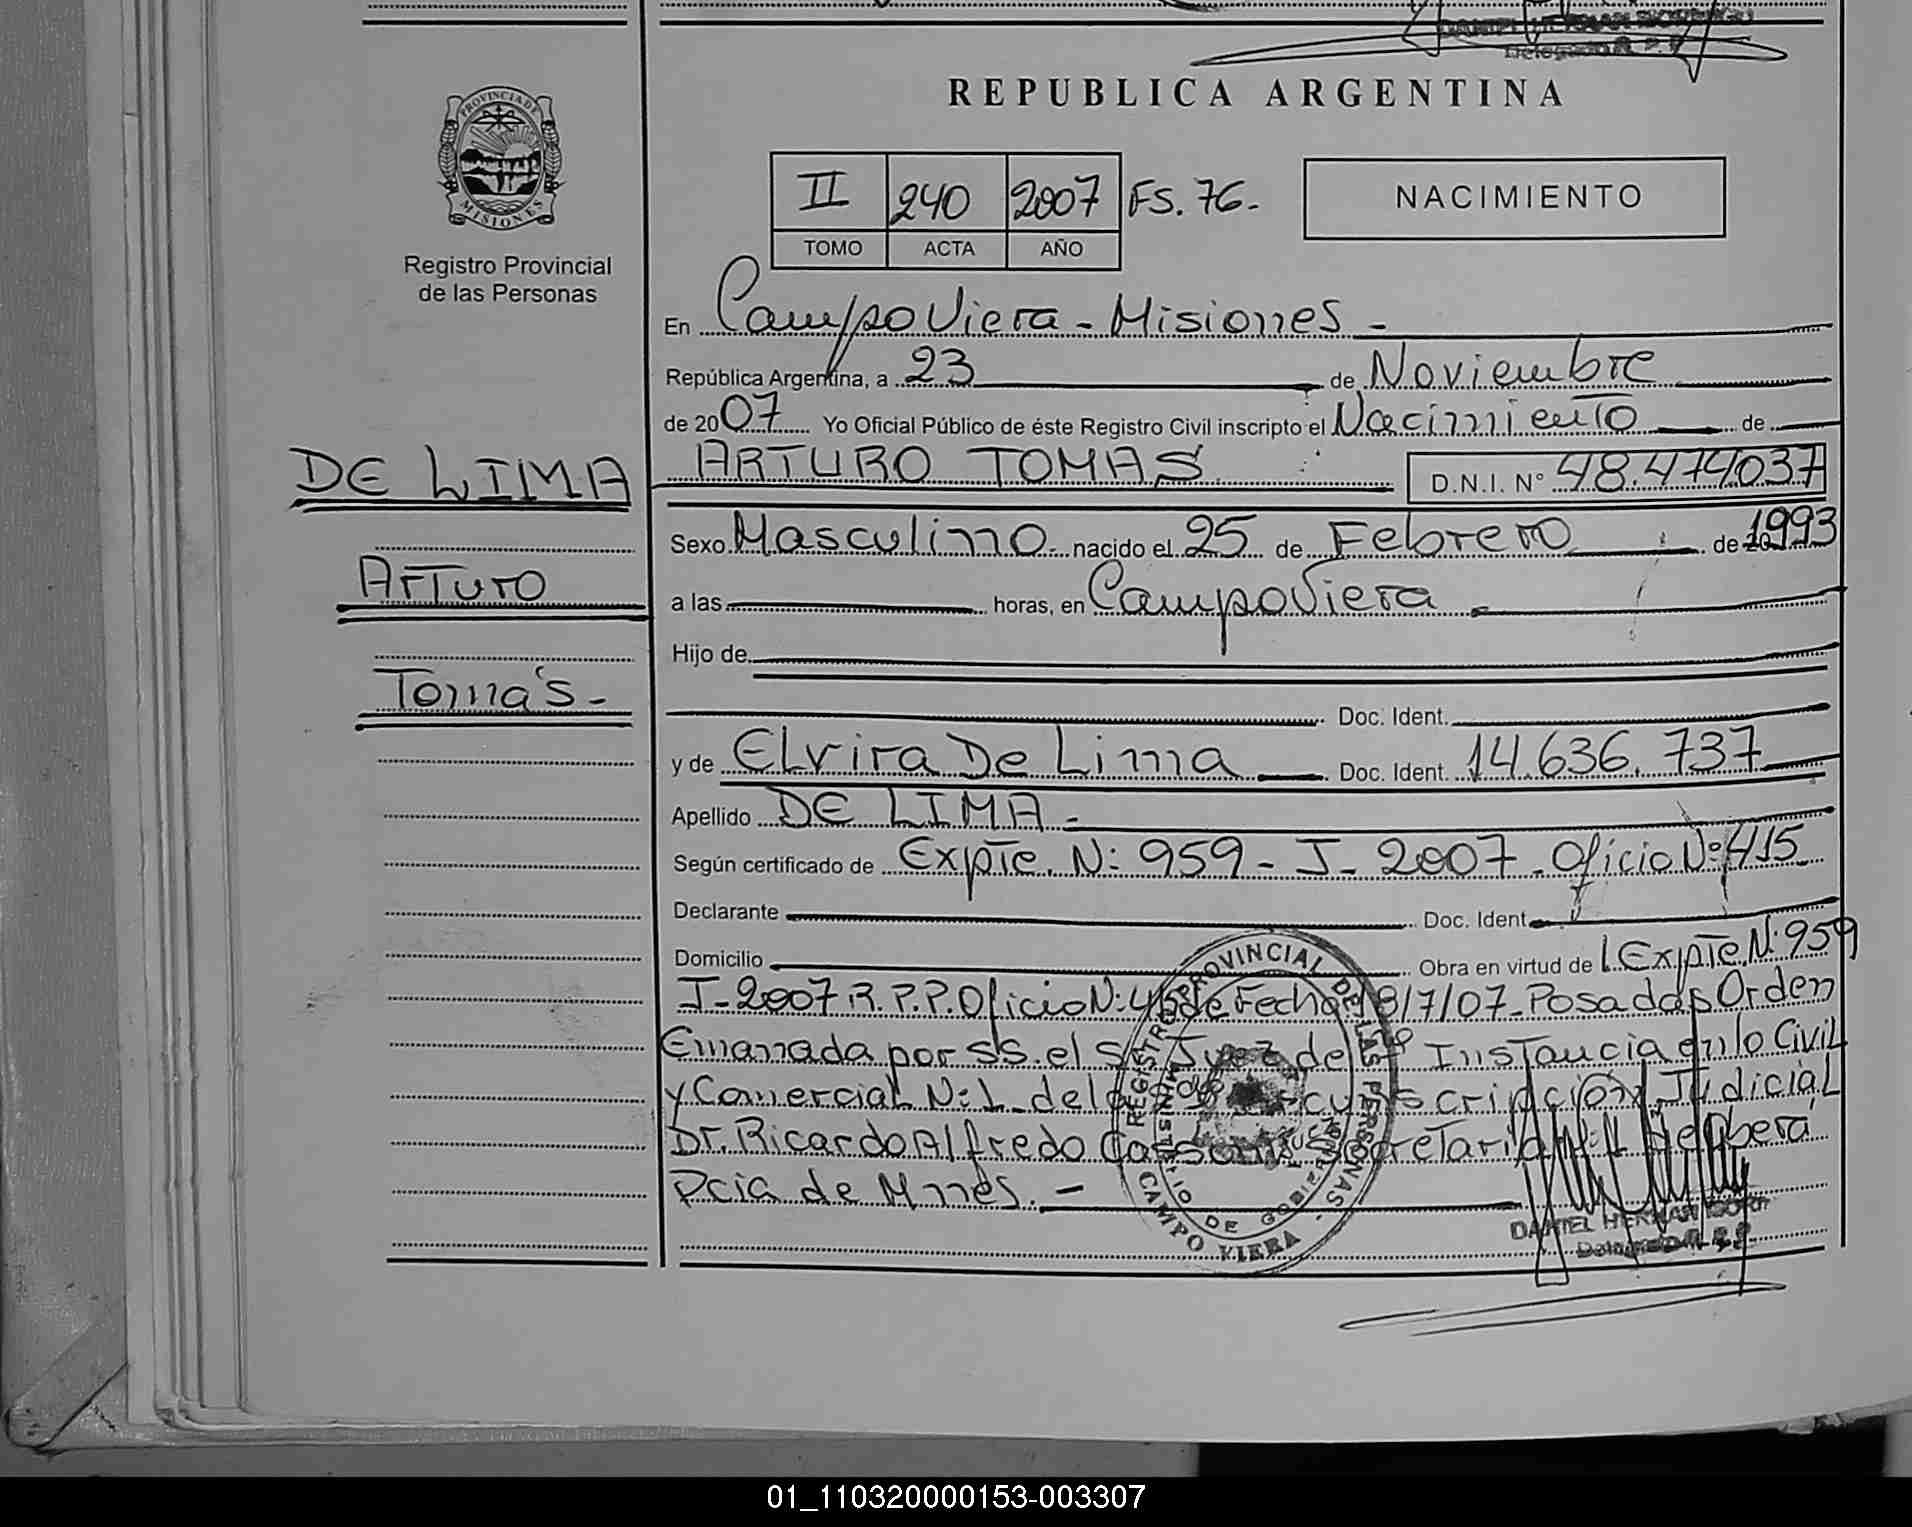 DANIEL HERNAN
Delegado R. P. P.
REPUBLICA ARGENTINA
PROVINCIA DE
MISIONES
Registro Provincial
de las Personas
II 240 2007 FS. 76.-
TOMO ACTA AÑO
NACIMIENTO
En Campo Viera - Misiones -
República Argentina, a 23 de Noviembre
de 2007 Yo Oficial Público de éste Registro Civil inscripto el Nacimiento de
DE LIMA
ARTURO TOMAS D.N.I. N° 48.474037
Sexo Masculino nacido el 25 de Febrero de 1993
Arturo
a las horas, en Campo Viera -
Hijo de
Tomás -
Doc. Ident.
y de Elvira De Lima Doc. Ident. 14.636.737
Apellido DE LIMA -
Según certificado de Expte. N: 959 - J - 2007 - Oficio Nº 415
Declarante Doc. Ident.
Domicilio Obra en virtud de Expte. N: 959
J-2007 R.P.P. Oficio N: de Fecha 18/7/07 - Posadas Orden
Emanada por S.S. el Sr Juez de 1º Instancia en lo Civil
y Comercial N: 1 - de la Circunscripción Judicial
Dr. Ricardo Alfredo Secretaria
Pcia de Mnes. -
REGISTRO PROVINCIAL DE LAS PERSONAS - CAMPO VIERA
MINISTERIO DE GOBIERNO
DANIEL HERNAN
Delegado R. P. P.
01_110320000153-003307